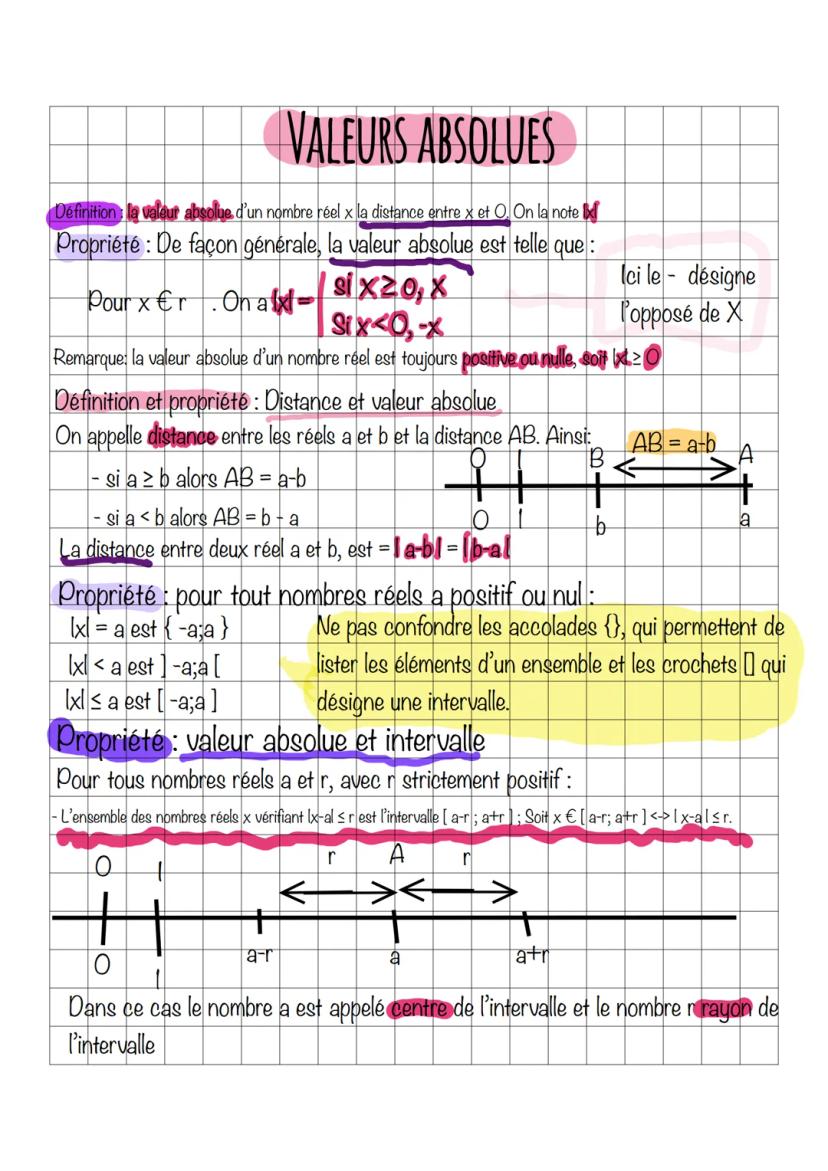 VALEURS ABSOLUES
Définition : la valeur absolue d'un nombre réel x la distance entre x et 0. On la note |x|
Propriété : De façon générale, la valeur absolue est telle que :
Ici le - désigne
l'opposé de X
Pour x € r . On a |x| =
si x ≥ 0, x
Si x < 0, -x
Remarque: la valeur absolue d'un nombre réel est toujours positive ou nulle, soit |x| ≥ 0
Définition et propriété : Distance et valeur absolue
On appelle distance entre les réels a et b et la distance AB. Ainsi:
AB = a-b
O I B A
- si a ≥ b alors AB = a-b
- si a < b alors AB = b - a
0 1 b a
La distance entre deux réel a et b, est = |a-b| = |b-a|
Propriété : pour tout nombres réels a positif ou nul :
|x| = a est { -a;a }
|x| < a est ] -a;a [
|x| ≤ a est [ -a;a ]
Ne pas confondre les accolades {}, qui permettent de
lister les éléments d'un ensemble et les crochets [] qui
désigne une intervalle.
Propriété : valeur absolue et intervalle
Pour tous nombres réels a et r, avec r strictement positif :
- L'ensemble des nombres réels x vérifiant |x-a| ≤ r est l'intervalle [ a-r ; a+r ] ; Soit x € [ a-r; a+r ] <-> | x-a | ≤ r.
O I r A r
0 1 a-r a a+r
Dans ce cas le nombre a est appelé centre de l'intervalle et le nombre r rayon de
l'intervalle